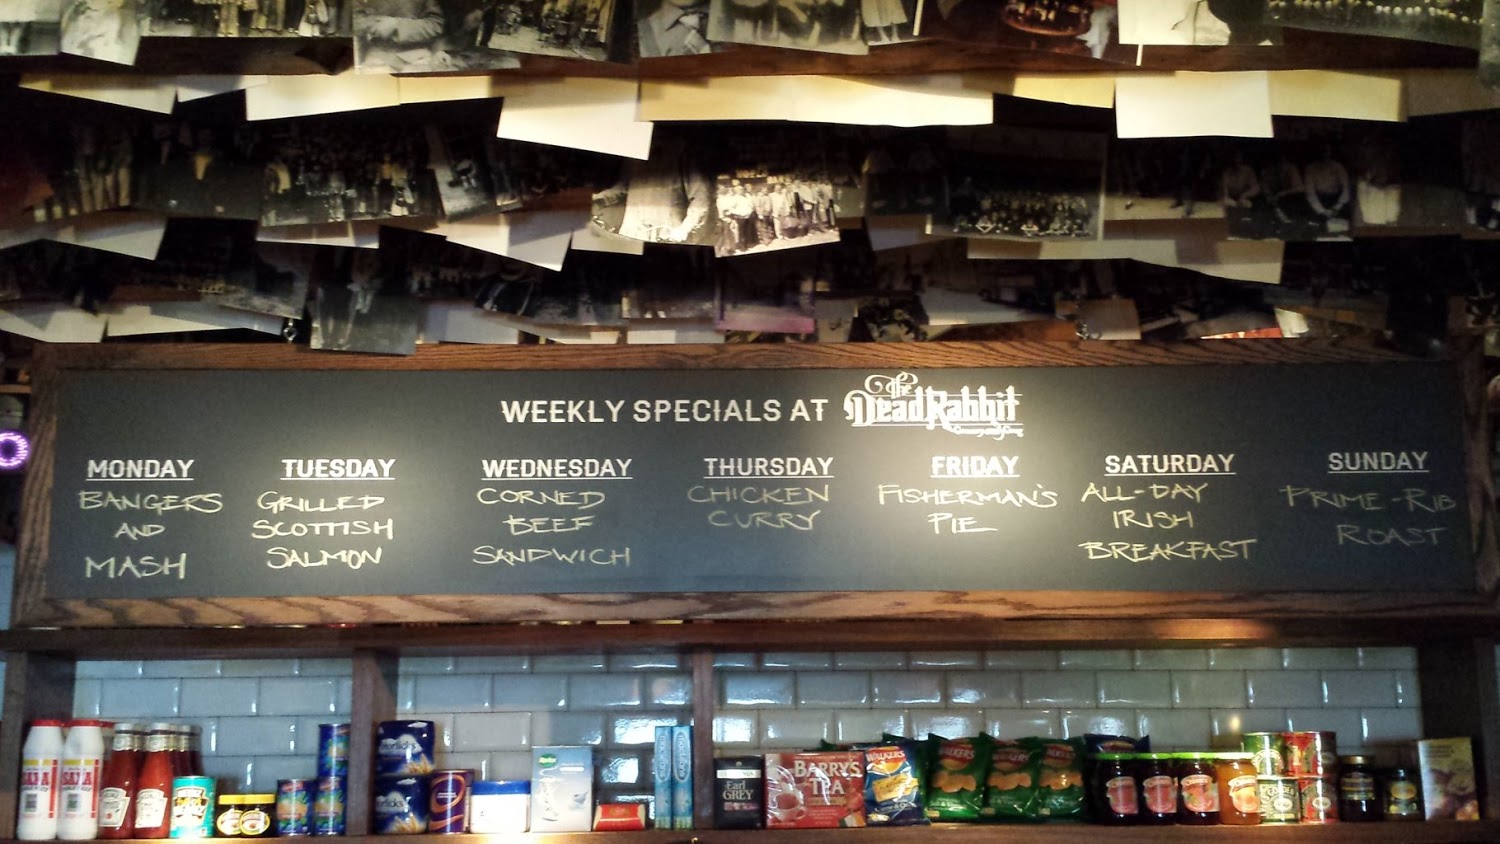 WEEKLY SPECIALS AT The Dead Rabbit
MONDAY
BANGERS
AND
MASH
TUESDAY
GRILLED
SCOTTISH
SALMON
WEDNESDAY
CORNED
BEEF
SANDWICH
THURSDAY
CHICKEN
CURRY
FRIDAY
FISHERMAN'S
PIE
SATURDAY
ALL-DAY
IRISH
BREAKFAST
SUNDAY
PRIME-RIB
ROAST
SAXA
SAXA
HEINZ
Horlicks
Earl
GREY
BARRY'S
TEA
WALKERS
WALKERS
WALKERS
WALKERS